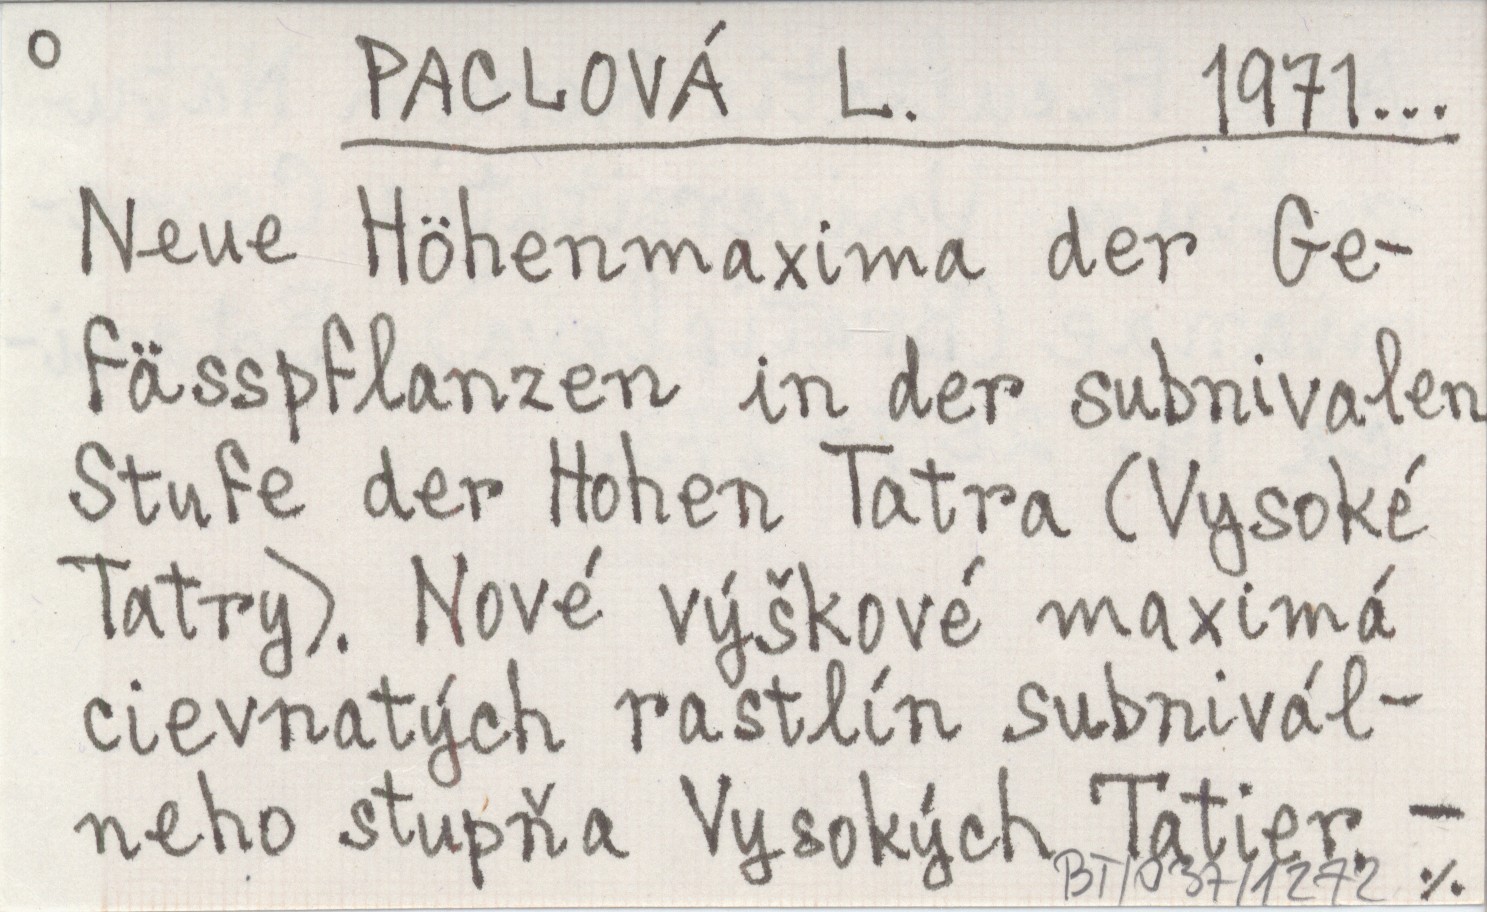 O PACLOVÁ L. 1971...
Neue Höhenmaxima der Ge-
fässpflanzen in der subnivalen
Stufe der Hohen Tatra (Vysoké
Tatry). Nové výškové maximá
cievnatých rastlín subnivál-
neho stupňa Vysokých Tatier. -
BT/037/1272 ./.